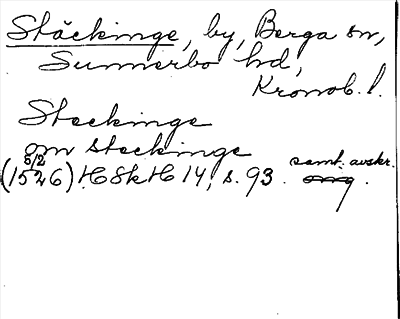 Stäckinge, by, Berga sn,
Sunnerbo hd,
Kronob. l.
Steckinge
om steckinge
(15 5/2 26) HSkH 14, s. 93. samt. avskr.